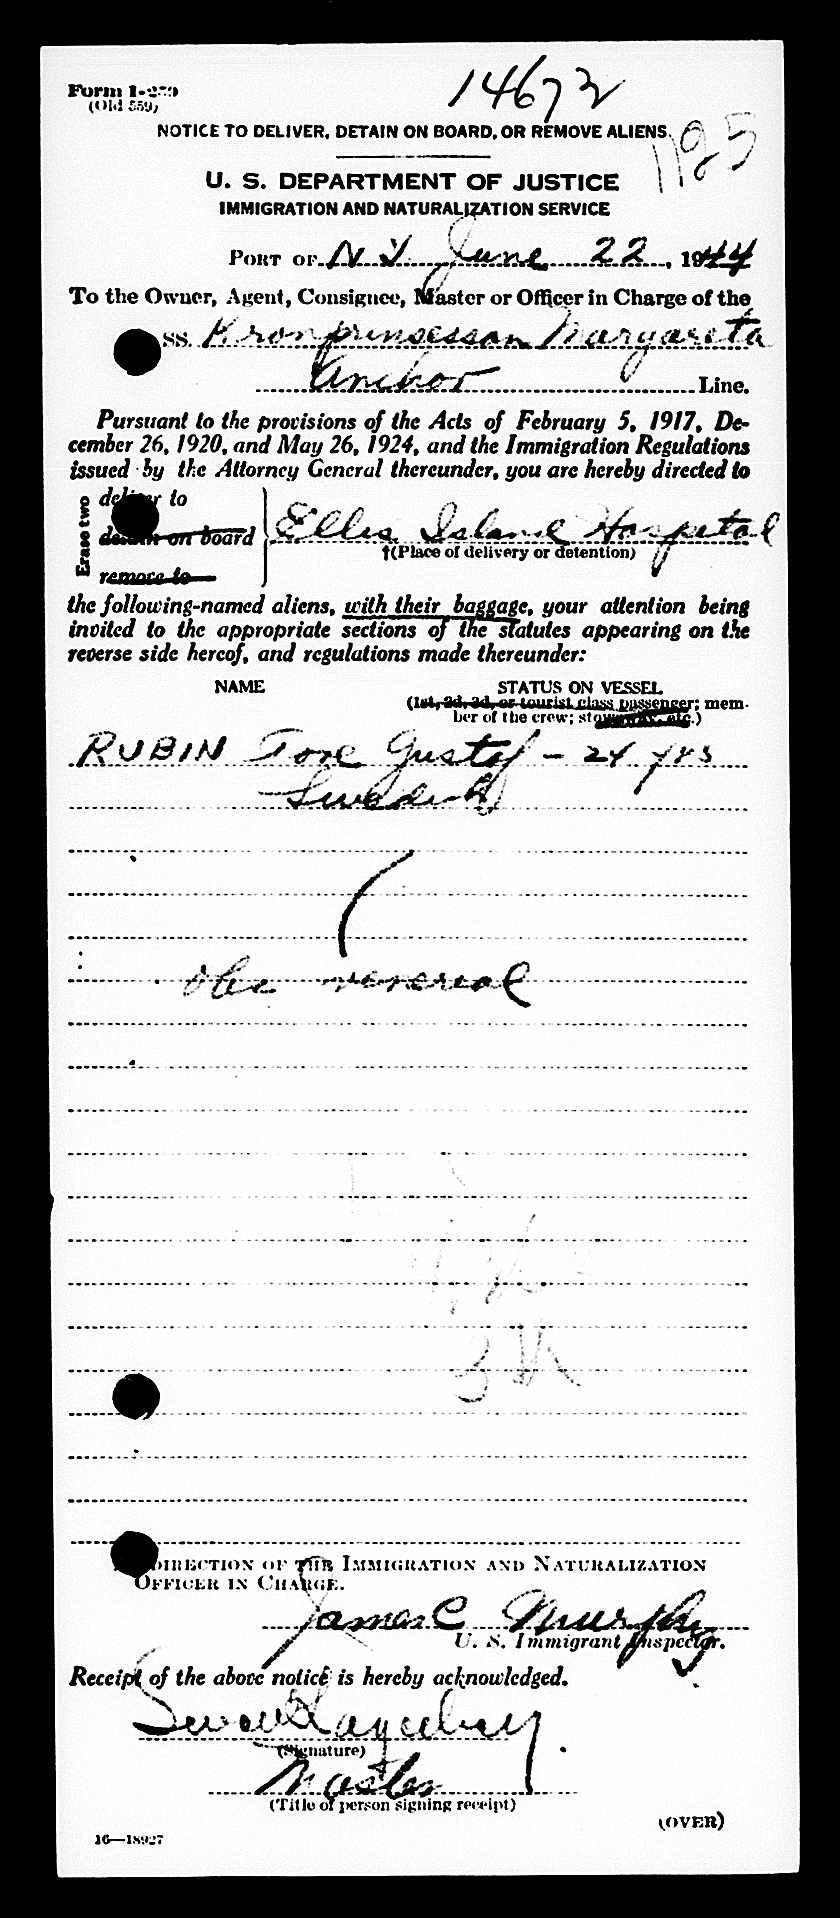 Form I-259
(Old 559)
14672
1125
NOTICE TO DELIVER, DETAIN ON BOARD, OR REMOVE ALIENS.
U. S. DEPARTMENT OF JUSTICE
IMMIGRATION AND NATURALIZATION SERVICE
PORT OF N Y. June 22, 1944
To the Owner, Agent, Consignee, Master or Officer in Charge of the
SS. Kronprinsessan Margareta
Anchor Line.
Pursuant to the provisions of the Acts of February 5, 1917, De-
cember 26, 1920, and May 26, 1924, and the Immigration Regulations
issued by the Attorney General thereunder, you are hereby directed to
Erase two
deliver to
detain on board
remove to
Ellis Island Hospital
†(Place of delivery or detention)
the following-named aliens, with their baggage, your attention being
invited to the appropriate sections of the statutes appearing on the
reverse side hereof, and regulations made thereunder:
NAME STATUS ON VESSEL
(1st, 2d, 3d, or tourist class passenger; mem-
ber of the crew; stowaway, etc.)
RUBIN Tore Gustaf - 24 yrs
Swedish
obs venereal
DIRECTION OF THE IMMIGRATION AND NATURALIZATION
OFFICER IN CHARGE.
James C Murphy
U. S. Immigrant Inspector.
Receipt of the above notice is hereby acknowledged.
(Signature)
Master
(Title of person signing receipt)
(OVER)
16—18927